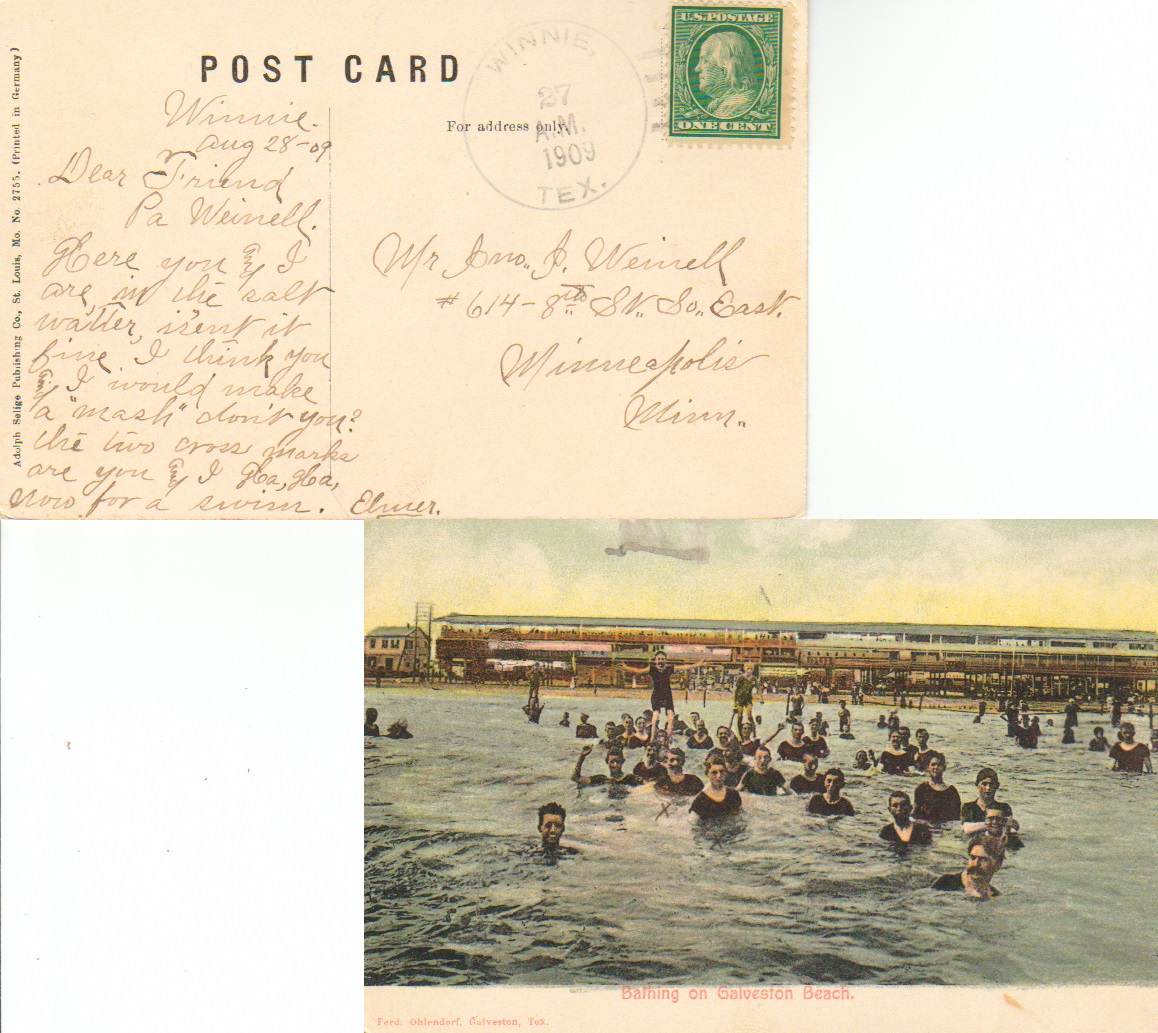 POST CARD
For address only.
WINNIE,
27
A.M.
1909
TEX.
U.S. POSTAGE
ONE CENT
Adolph Selige Publishing Co., St. Louis, Mo. No. 2755. (Printed in Germany)
Winnie.
Aug 28-09
Dear Friend
Pa Weinell.
Here you & I
are, in the salt
watter, isent it
fine I think you
& I would make
a "mash" don't you?
the two cross marks
are you & I Ha, Ha,
now for a swim. Elmer.
Mr Jno. J. Weinell
# 614 - 8th St. So. East.
Minneapolis
Minn.
Bathing on Galveston Beach.
Ferd. Ohlendorf, Galveston, Tex.